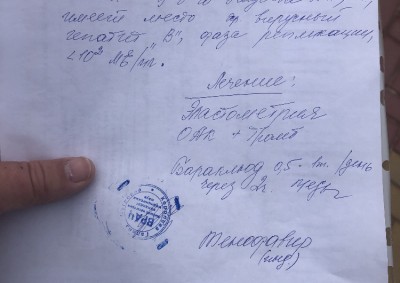 имеет место хр вирусный
гепатит В", фаза репликации,
<10² МЕ/мл.
Лечение:
Эластометрия
ОАК + Тромб
Бараклюд 0,5 1т. /день
через 2ч.
ВРАЧ
Тенофовир
(инд.)